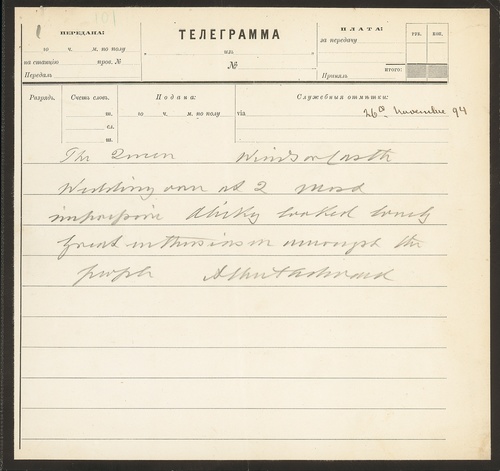 ПЕРЕДАНА:
го ч. м. по полу
на станцію пров. №
Передалъ
ТЕЛЕГРАММА
изъ
№
ПЛАТА:
за передачу
РУБ. КОП.
ИТОГО:
Принялъ
Разрядъ. Счетъ словъ. Подана: Служебныя отмѣтки:
го ч. м. по полу via 26th Novembre 94
сл.
The Queen Windsor Castle
Wedding over at 2 most
impressive Alicky looked lovely
Great enthusiasm amongst the
people Albert Edward